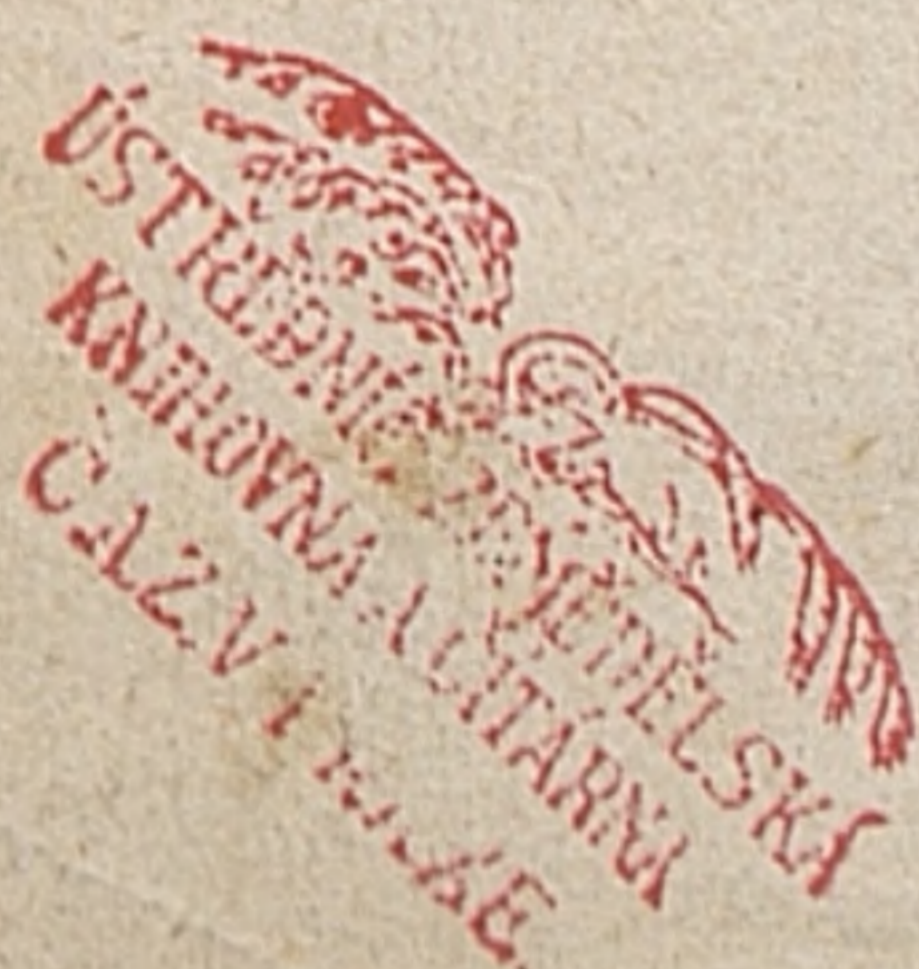 ÚSTŘEDNÍ ZEMĚDĚLSKÁ
KNIHOVNA A ČÍTÁRNA
ČAZ V PRAZE